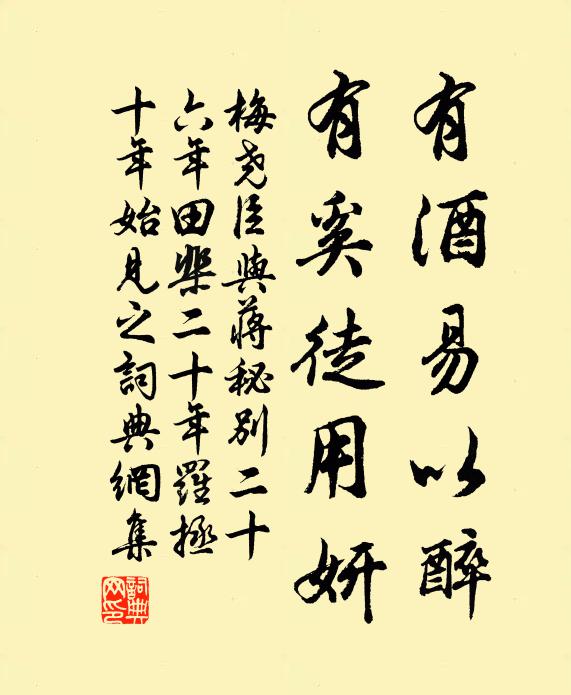 有酒易以醉
有奚徒用妍
梅尧臣與蔣秘别二十
六年田棐二十年羅拯
十年始見之詞典網集
詞典网印